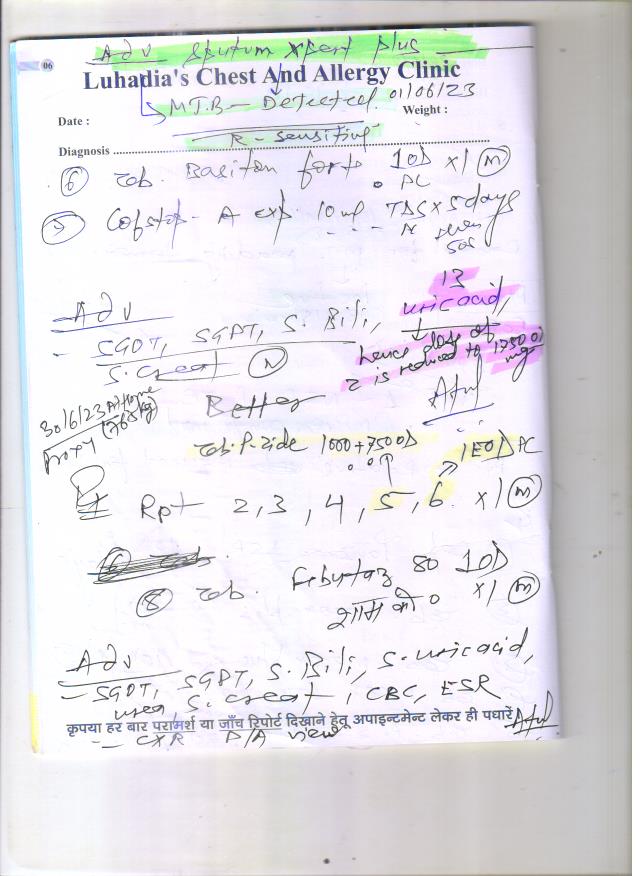 06
Adv Sputum Xpert plus
Luhadia's Chest And Allergy Clinic
MTB - Detected. 01/06/23
Date : Weight :
R - sensitive
Diagnosis
⑥ Tab. Basiton forte 1OD x 1 (m)
PC
Cofstop - A exp. 10 ml TDS x 5 days
SOS
13
Adv
- SGOT, SGPT, S. Bili, uric acid,
S. Creat (N)
hence dose of
Z is reduced to 1750 OD
mg
Atul
30/6/23 At Home
Proxy (76.8 kg)
Better
Tab. P-zide 1000 + 750 OD
1EOD PC
Rx Rpt 2, 3, 4, 5, 6. x 1 (m)
⑧ Tab. Febutaz 80 1OD
शाम को x 1 (m)
Adv
- SGOT, SGPT, S. Bili, S. uric acid,
urea, S. Creat, CBC, ESR
कृपया हर बार परामर्श या जाँच रिपोर्ट दिखाने हेतू अपाइन्टमेन्ट लेकर ही पधारें
Atul
- CXR P/A view